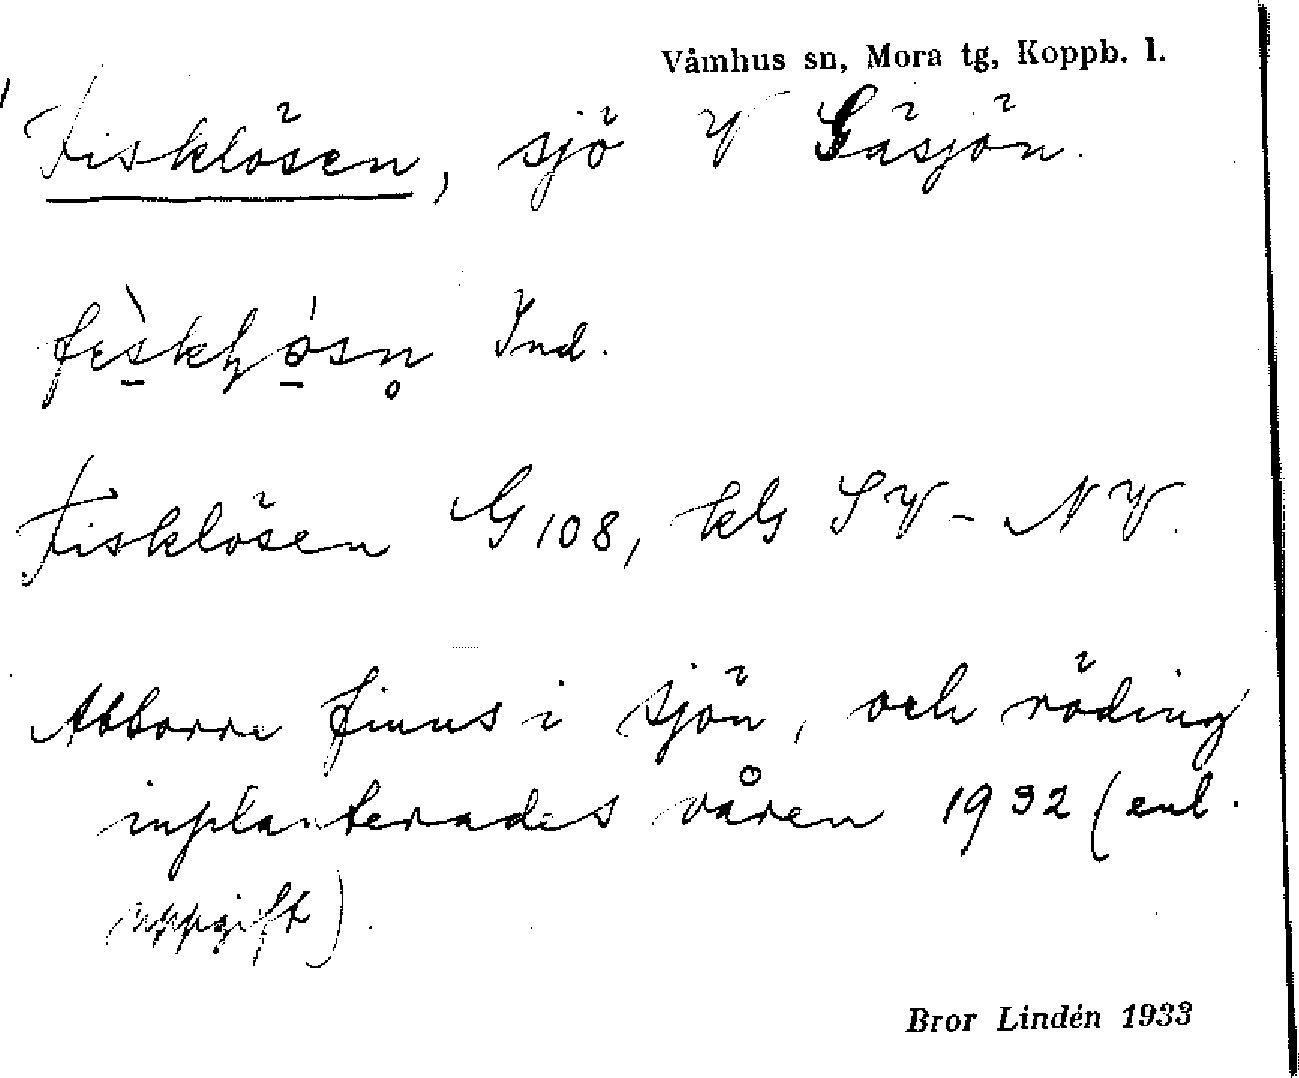 Våmhus sn, Mora tg, Koppb. l.
Fisklösen, sjö V Gäsjön.
Ind.
Fisklösen G 108, kG SV - NV.
Abborre finns i sjön, och röding
inplanterades våren 1932 (enl.
uppgift).
Bror Lindén 1933